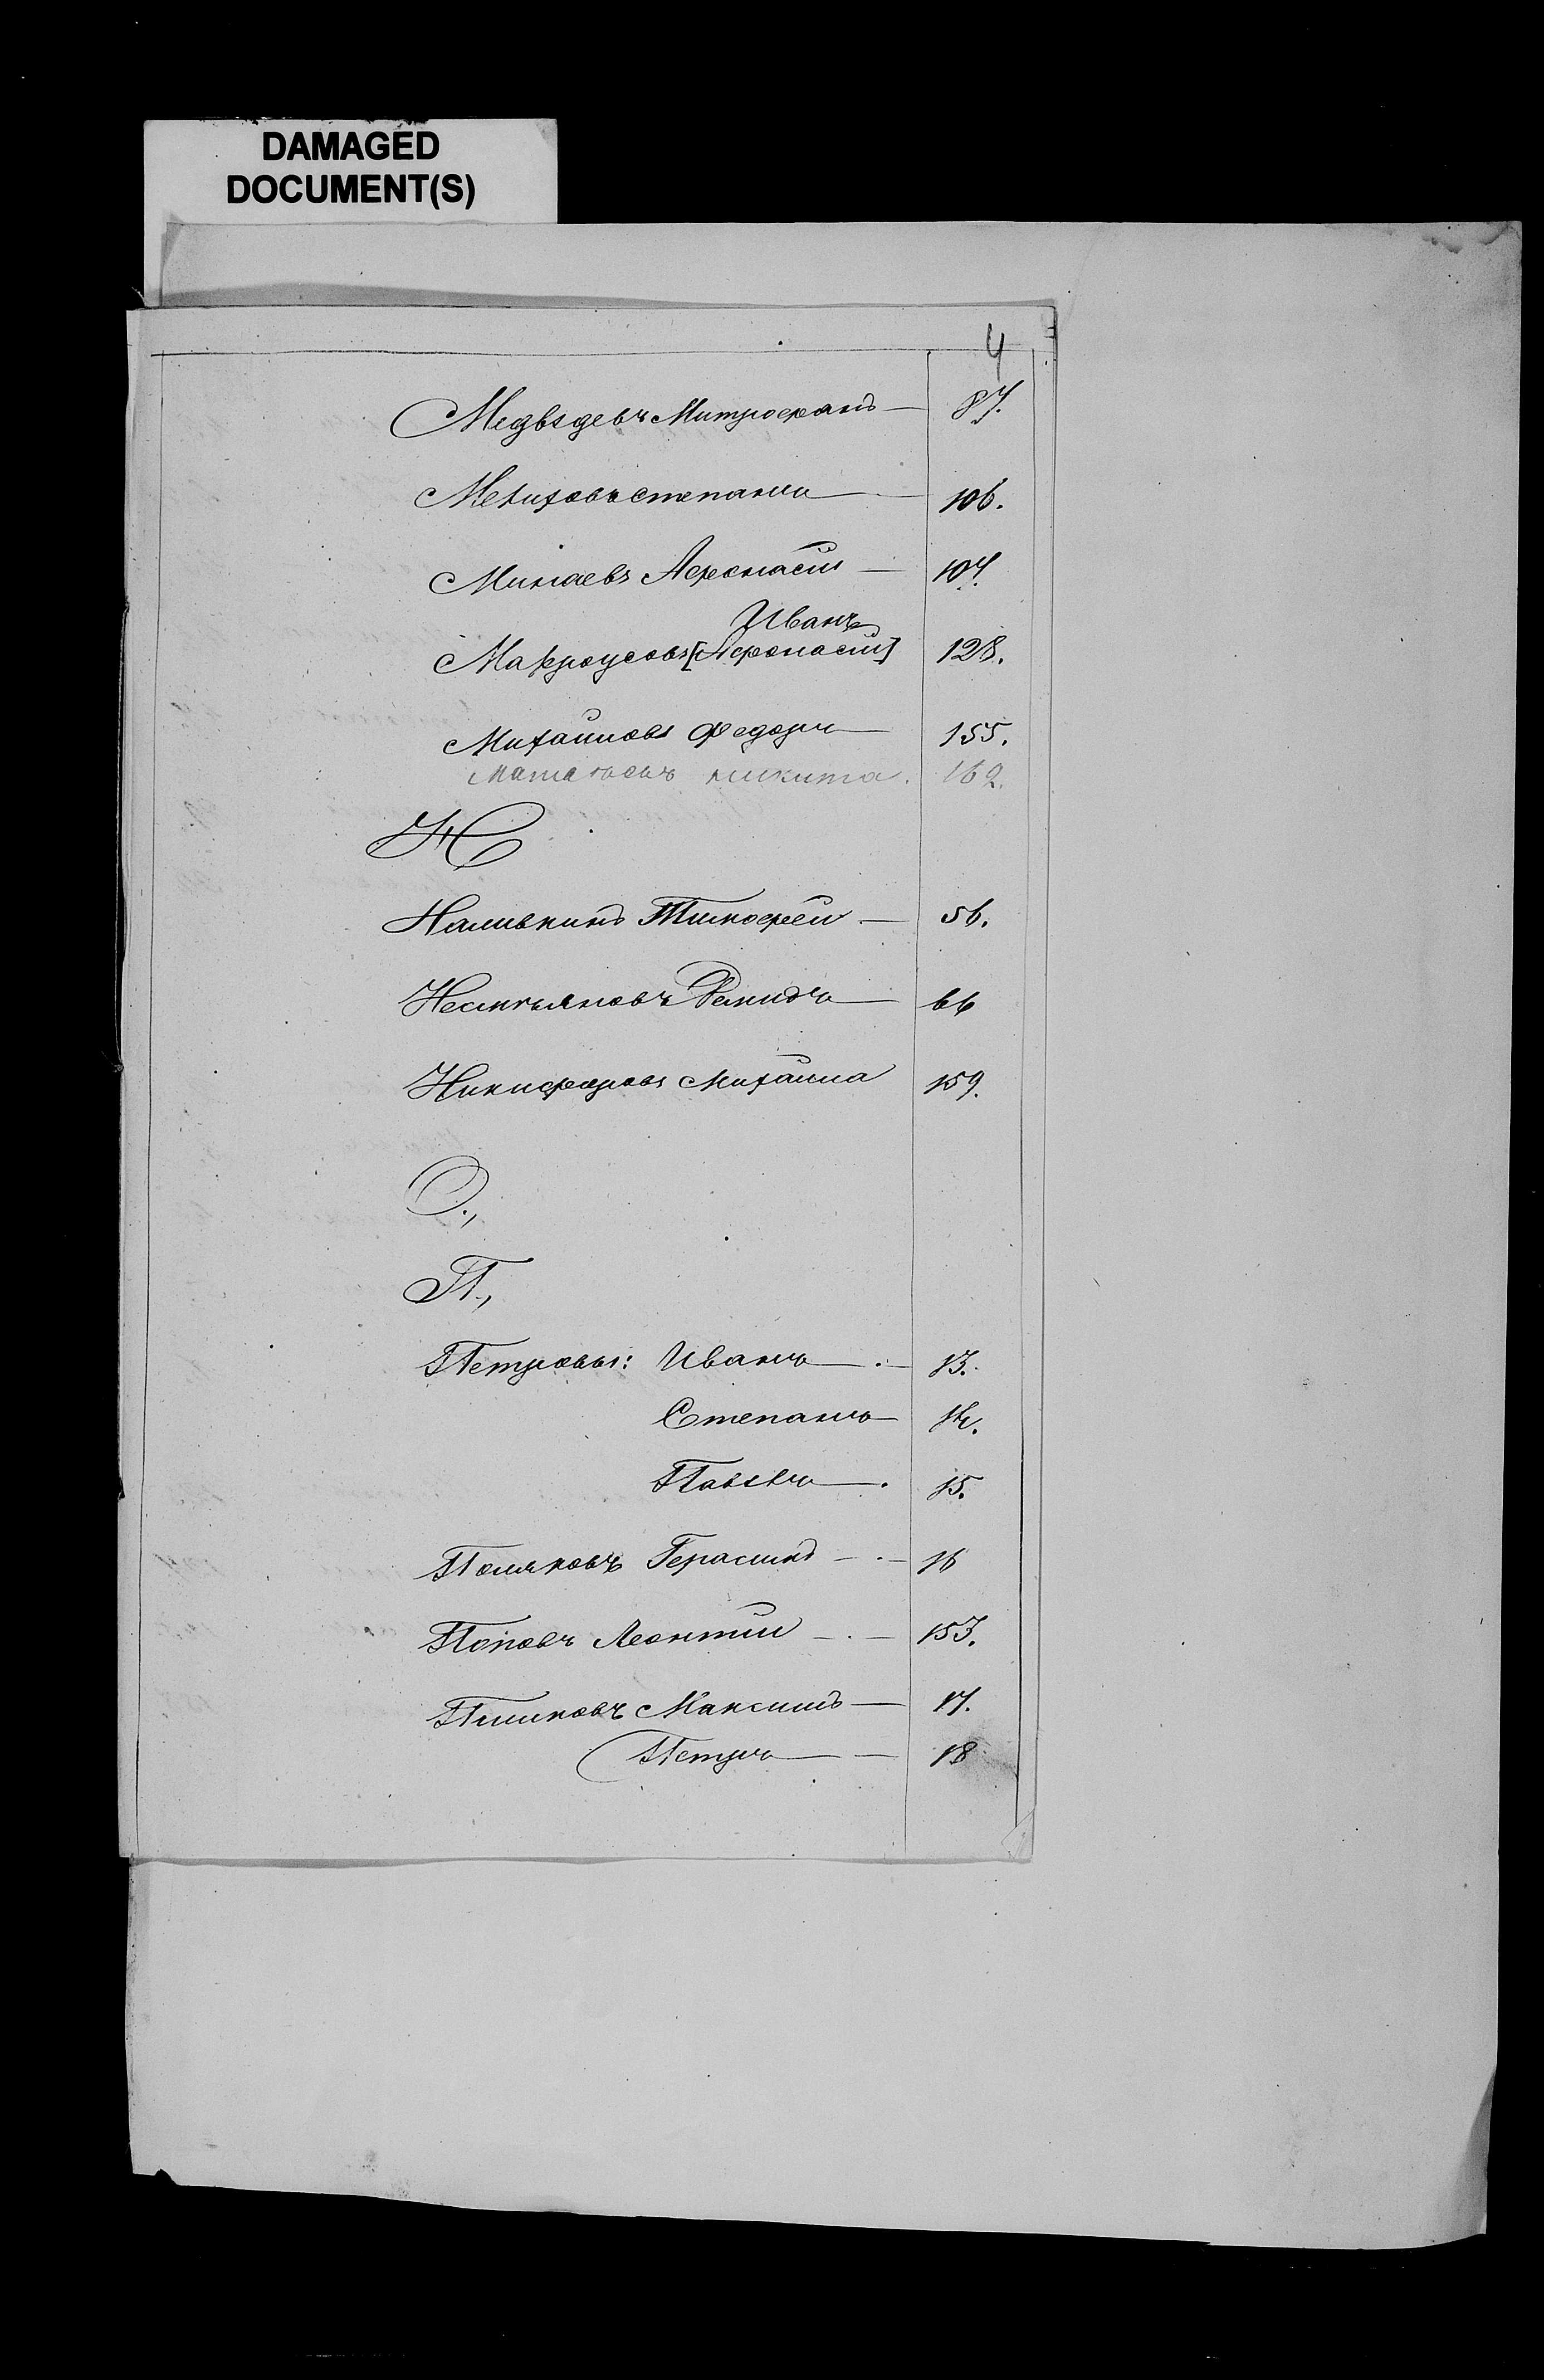 DAMAGED
DOCUMENT(S)
4
Медвѣдевъ Митрофанъ — 87.
Мелиховъ Степанъ — 106.
Минаевъ Афонасій — 107.
Иванъ
Мокроусовъ [Афонасій] 128.
Михайловъ Федоръ — 155.
Никита. 162.
Н
Наливкинъ Тимофей — 56.
Демидъ — 66
Никифоровъ Михайла 159.
О.,
П.,
Петровы: Иванъ — 13.
Степанъ — 14.
Павелъ — 15.
Поляковъ Герасимъ — 16
Поповъ Леонтій — 153.
Пашковъ Максимъ — 17.
Петръ — 18